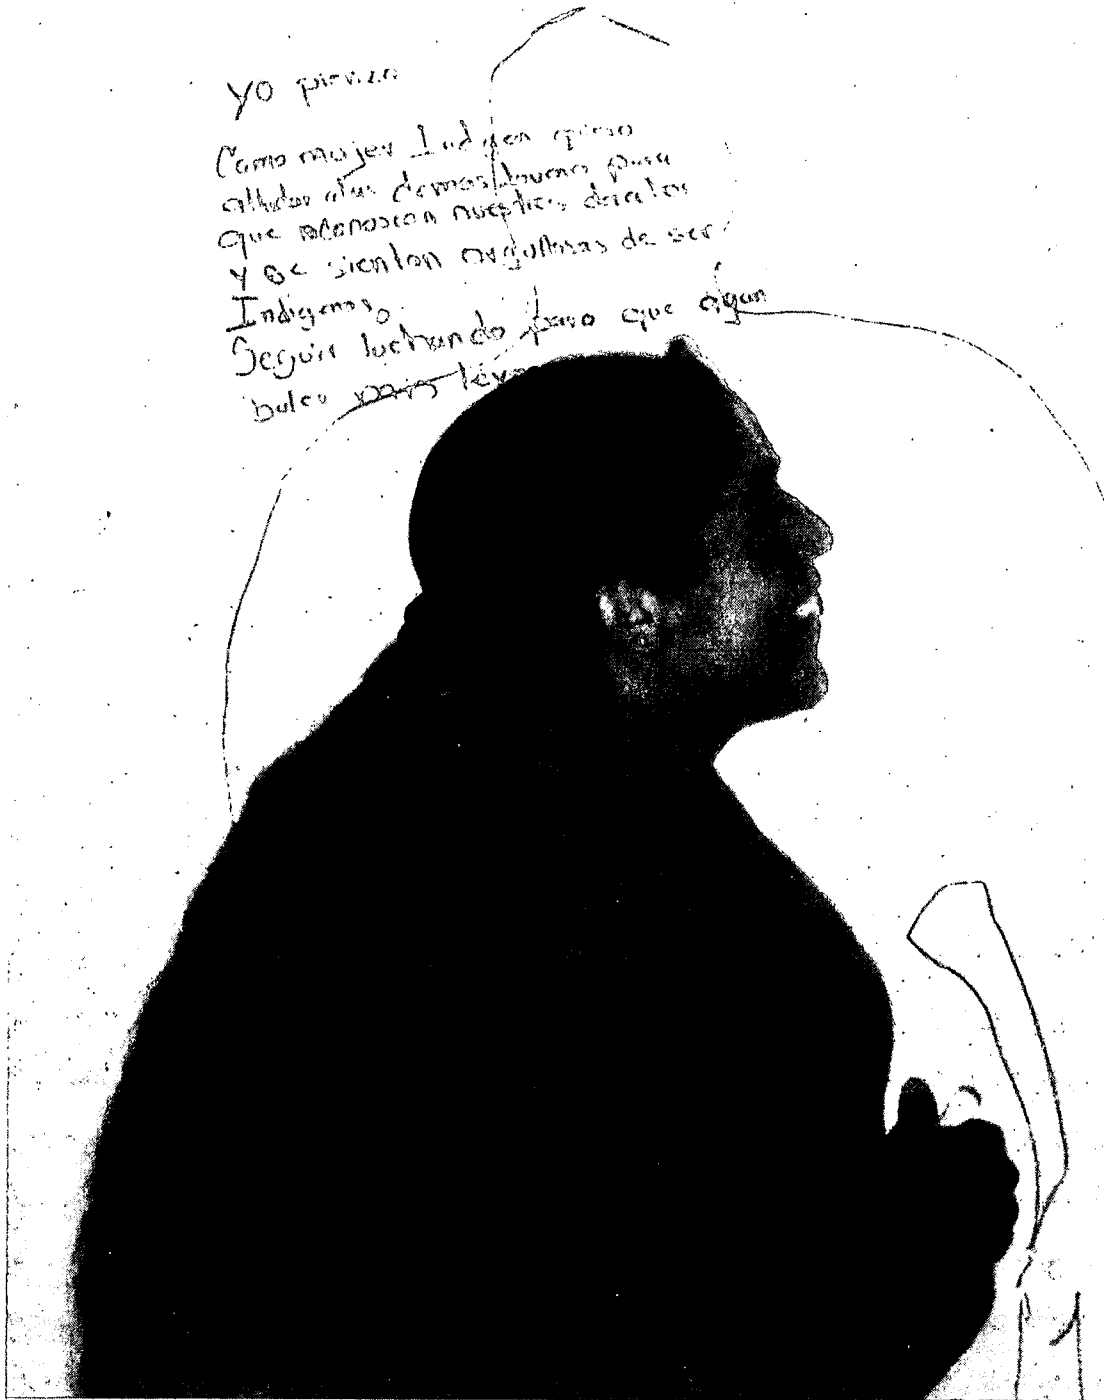 Yo pienzo
Como mujer Indijen quiero
alludar alas demas Jovenes para
que reconoscan nuestros
y se sientan orgullosas de ser
Indigenas.
Seguir luchando para que algun